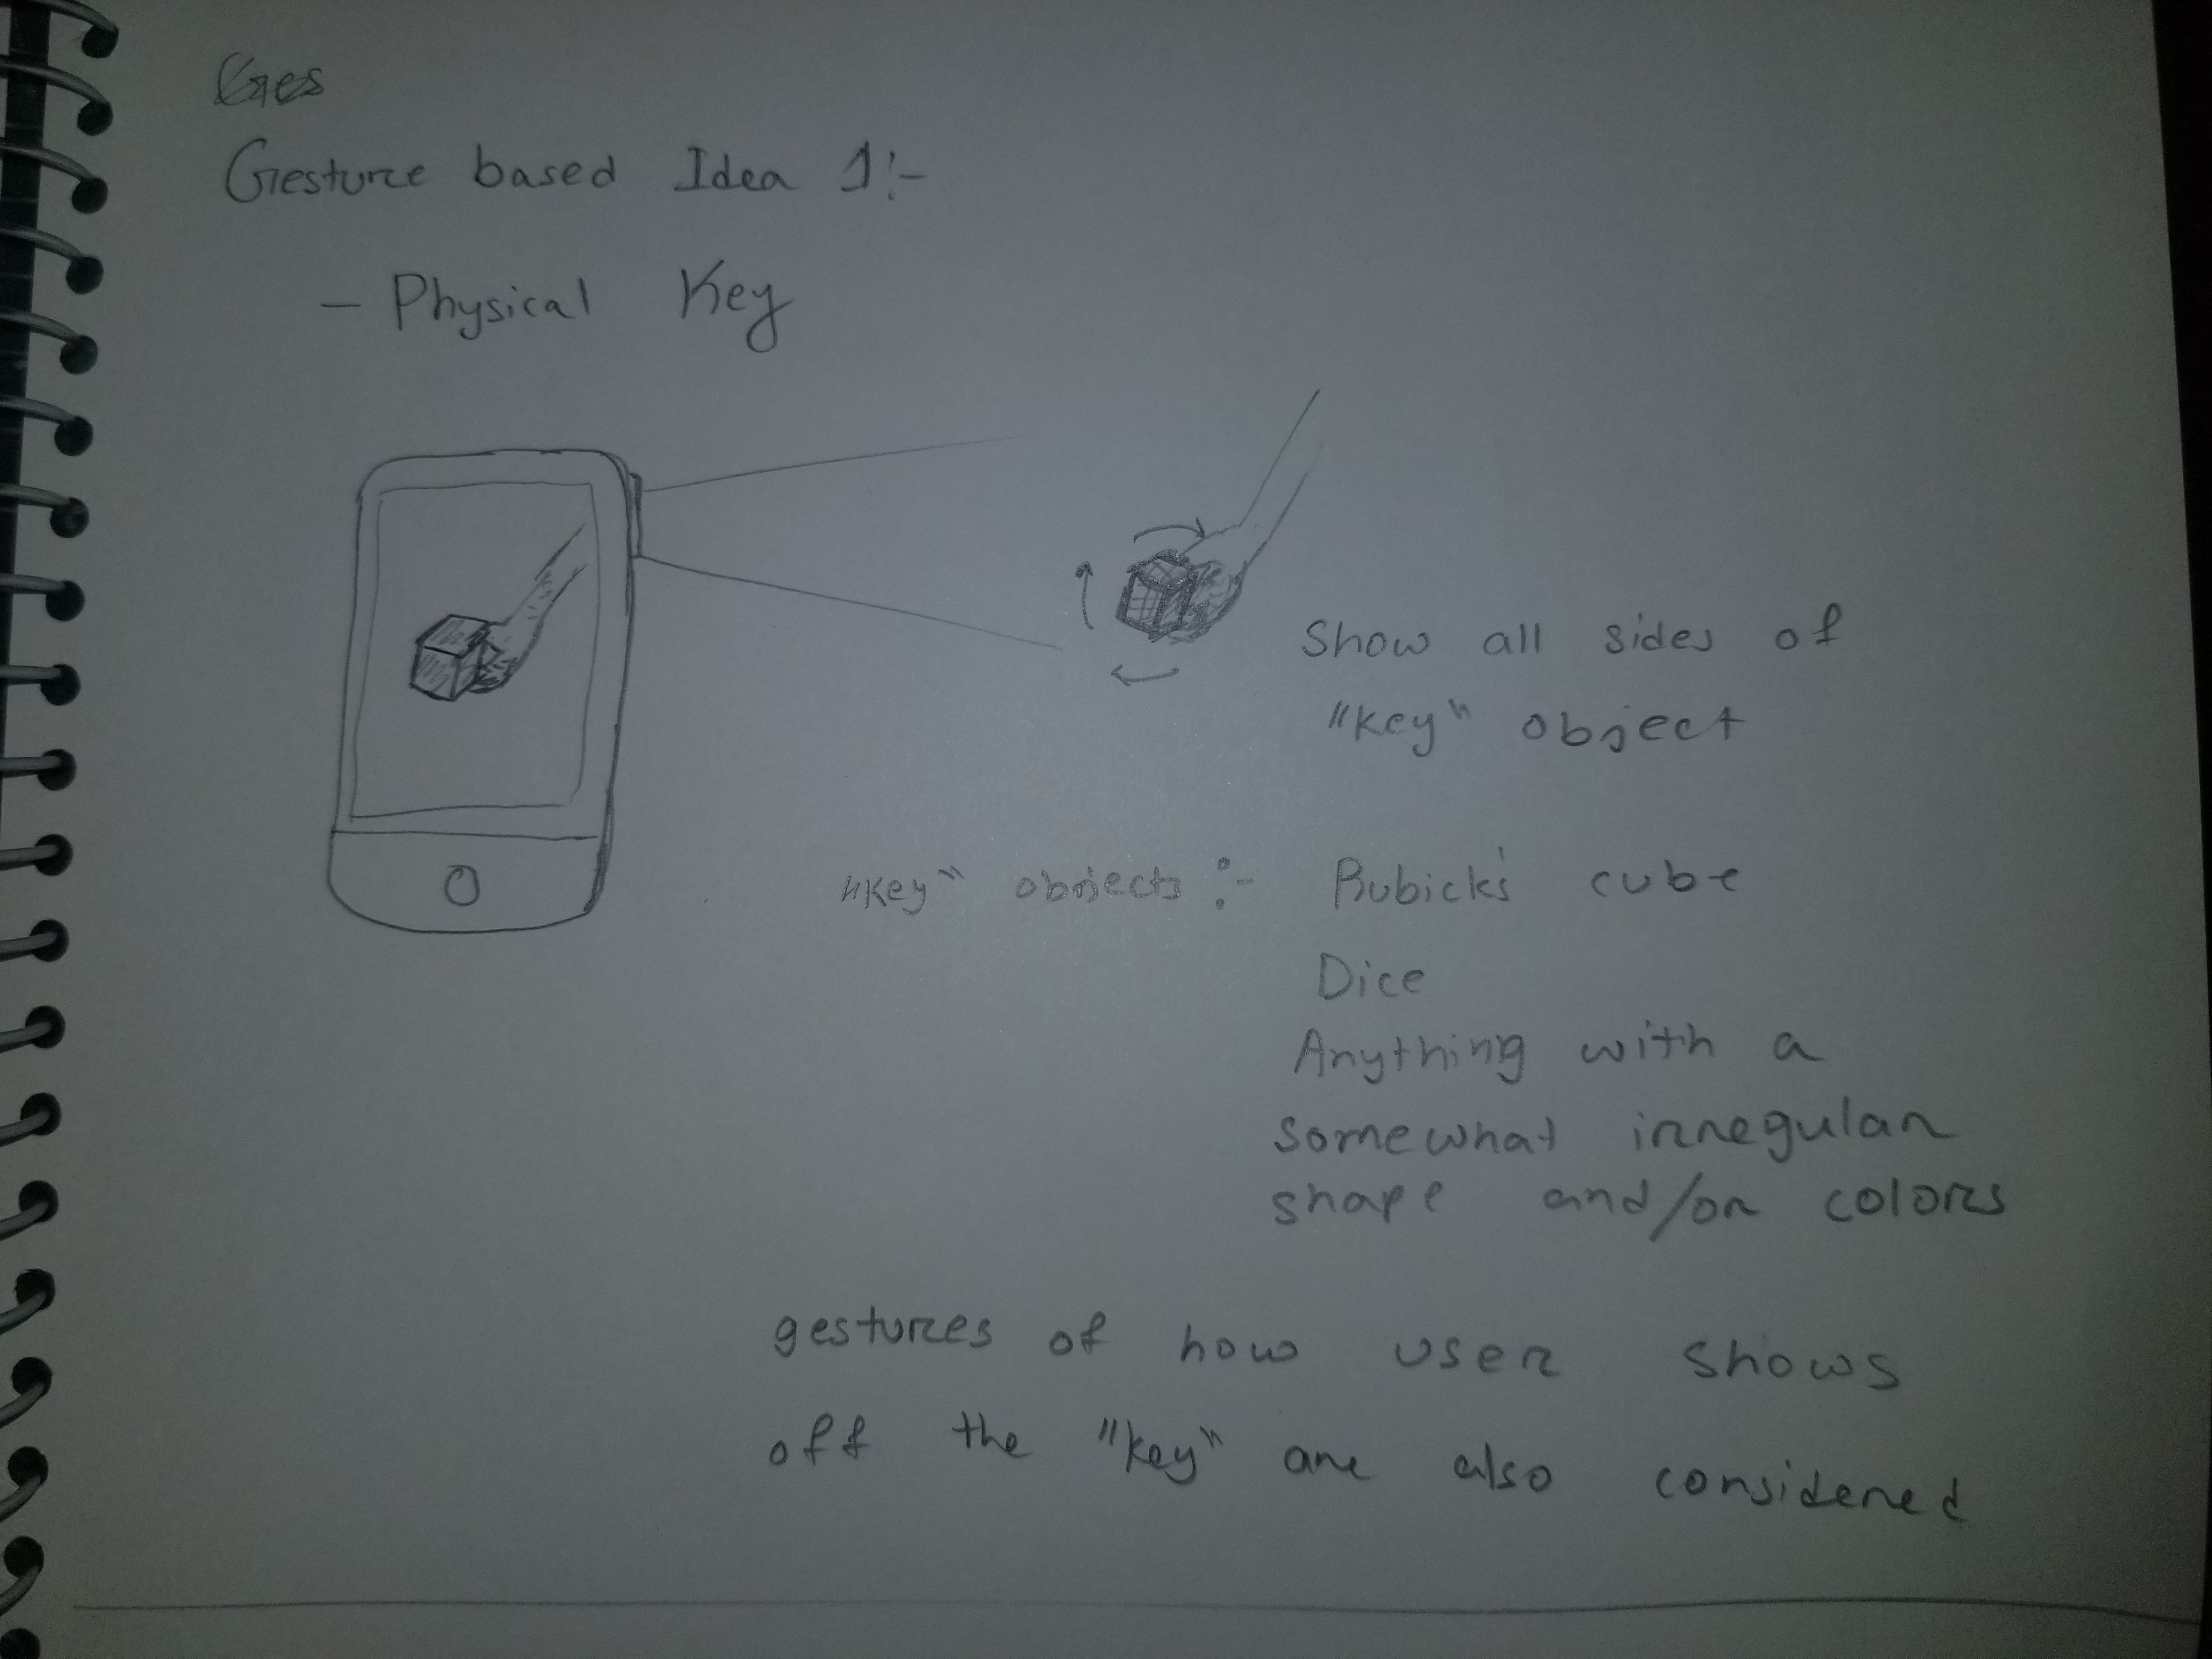 Ges
Gesture based Idea 1:-
- Physical Key
Show all sides of
"key" object
"Key" objects :- Rubick's cube
Dice
Anything with a
somewhat irregular
shape and/or colors
gestures of how user shows
off the "key" are also considered